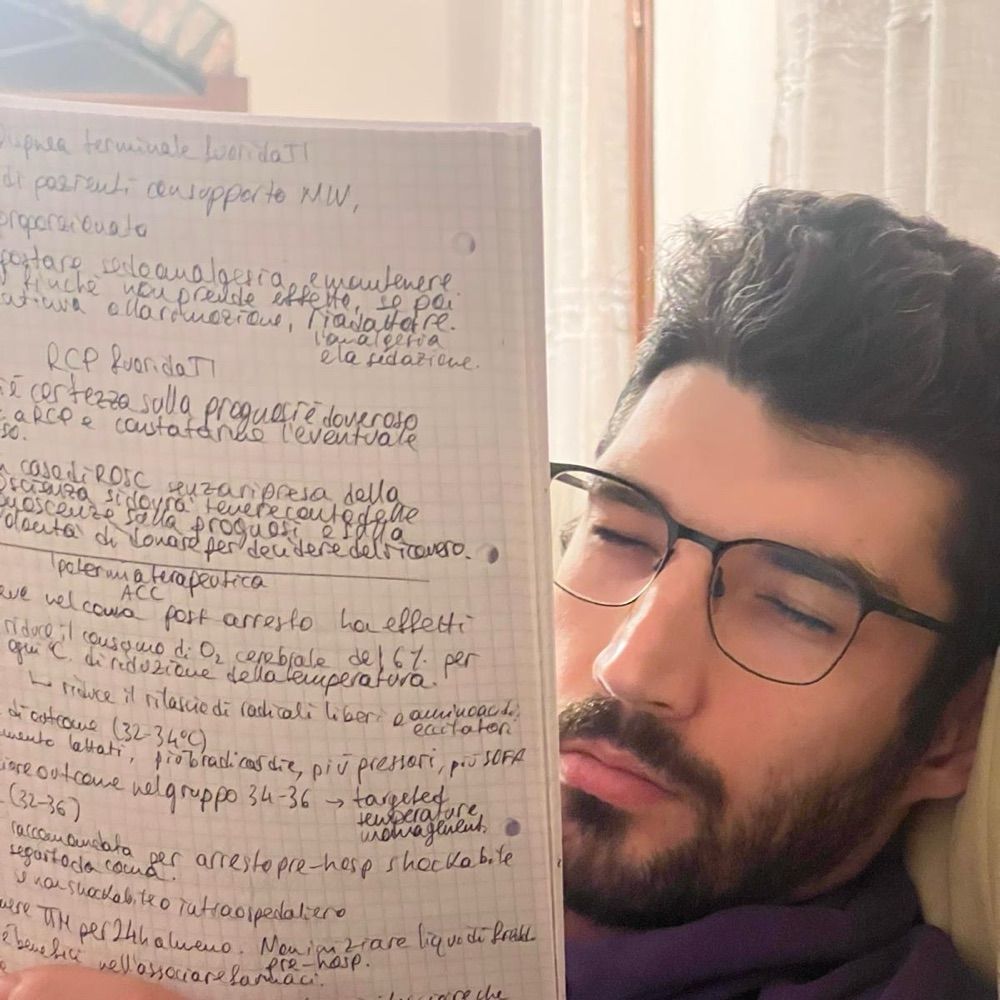 terminale fuori da TI
di pazienti con supporto MW,
proporzionato
sedoanalgesia, e mantenere
finchè non prende effetto, se poi
alla rimozione, riadattare
l'analgesia
e la sedazione.
RCP fuori da TI
certezza sulla prognosi è doveroso
RCP e constatando l'eventuale
caso di ROSC senza ripresa della
si dovrà tenere conto delle
sulla prognosi e sulla
di donare per decidere del ricovero.
Ipotermia terapeutica
ACC
nel coma post arresto ha effetti
riduce il consumo di O2 cerebrale del 6% per
ogni °C. di riduzione della temperatura.
↳ riduce il rilascio di radicali liberi e aminoacidi
eccitatori
di outcome (32-34°C)
lattati, più bradicardie, più pressori, più SOFA
outcome nel gruppo 34-36 → targeted
temperature
management
(32-36)
raccomandata per arresto pre-hosp shockabile
seguito da coma.
non shockabile o intraospedaliero
TTM per 24h almeno. Non iniziare liquidi freddi
pre-hosp.
benefici nell'associare farmaci.
che